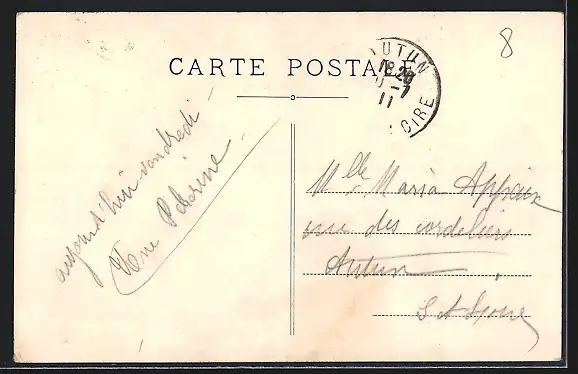 8
CARTE POSTALE
AUTUN
18 20
-7
11
OIRE
aujourd'hui vendredi
Pélerine
Mlle Maria
rue des cordeliers
Autun
S et Loire